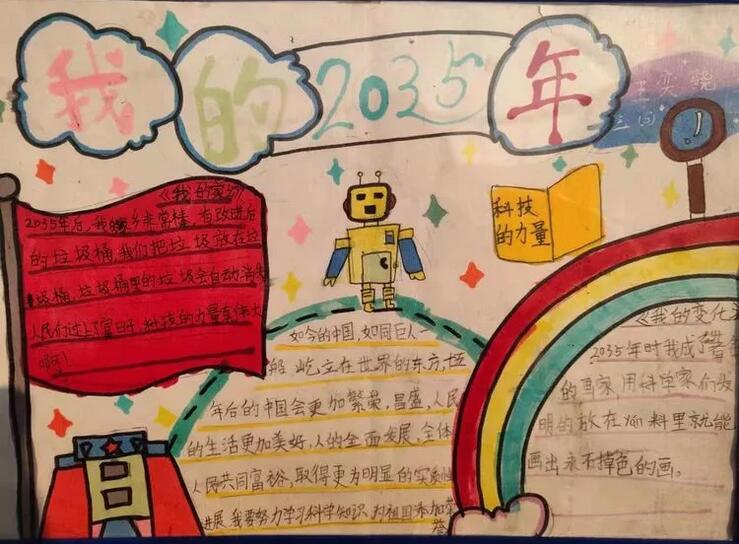 我的2035年
王奕骁
三
科技
的力量
《我的家乡》
2035年后,我的家乡非常棒,有改进后
的垃圾桶,我们把垃圾放在垃
圾桶,垃圾桶里的垃圾会自动消失
人民们过上了富日子,科技的力量真伟大
啊!
如今的中国,如同巨人一
般 屹立在世界的东方,
年后的中国会更加繁荣,昌盛,人民
的生活更加美好,人的全面发展,全体
人民共同富裕,取得更为明显的实质性
进展,我要努力学习科学知识,为祖国添加荣
誉
《我的变化》
2035年时我成
的画家,用科学家们发
明的放在yán料里就能
画出永不掉色的画。